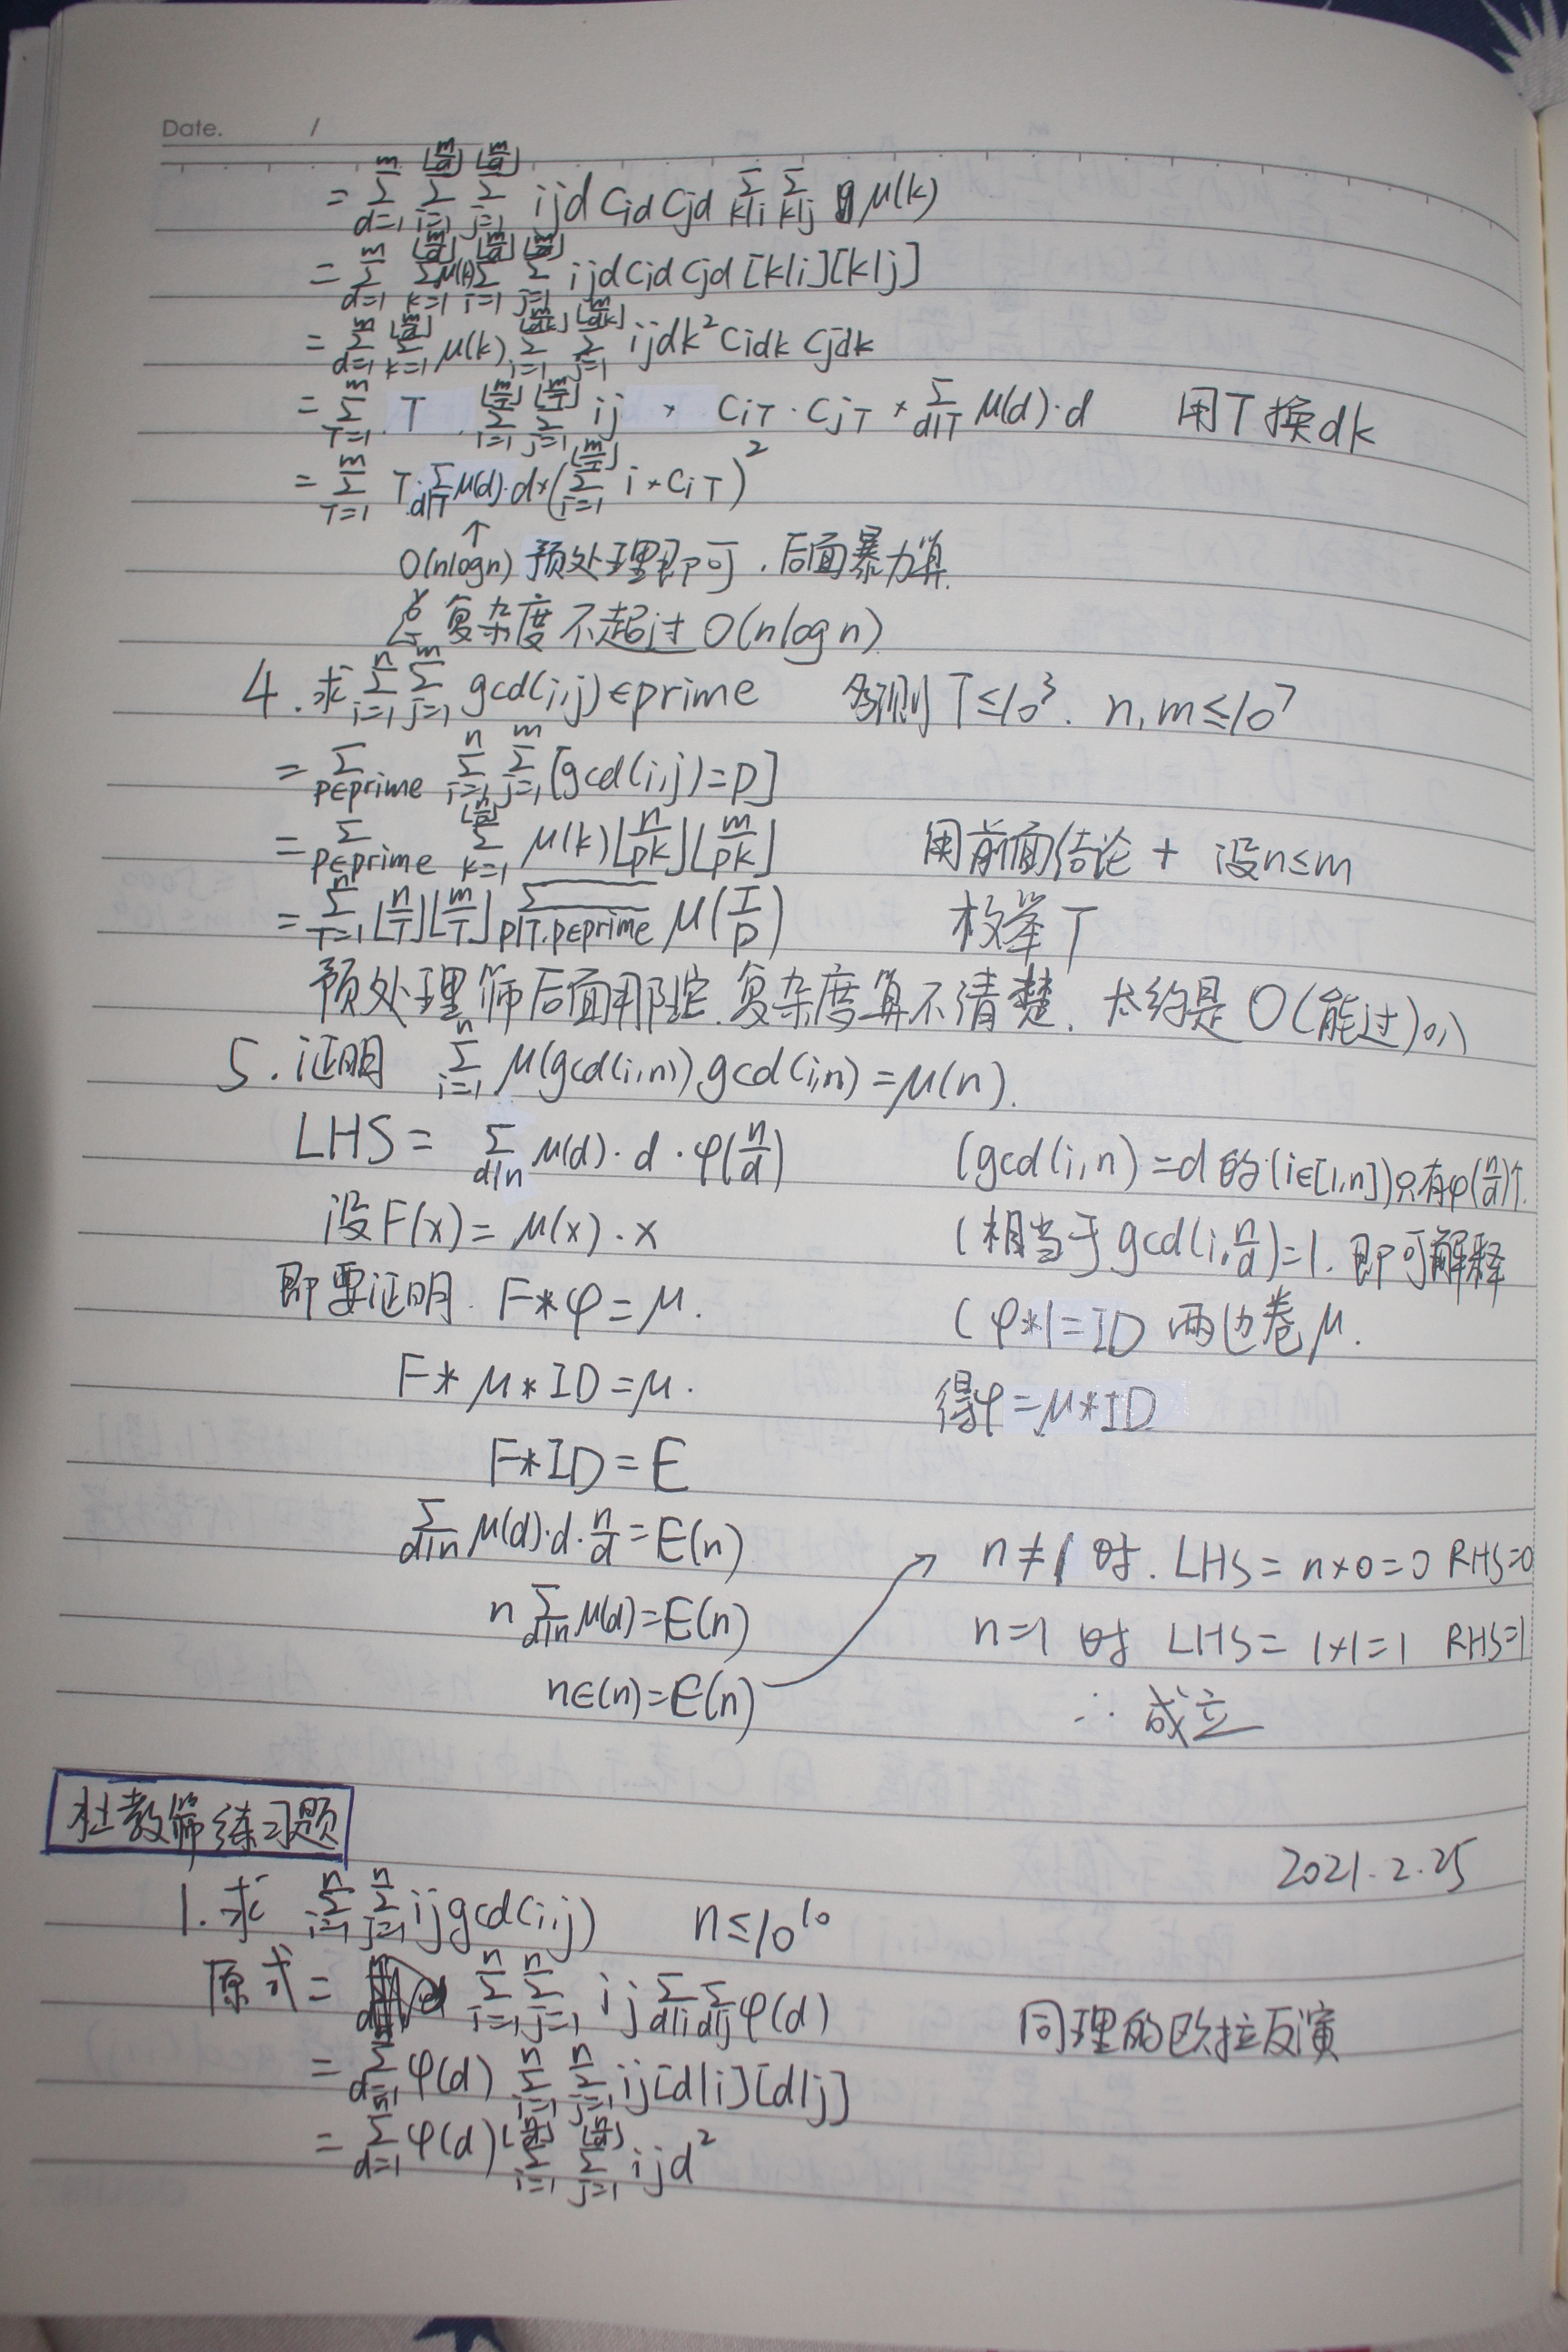 Date. /
= ∑_{d=1}^{m} ∑_{i=1}^{⌊m/d⌋} ∑_{j=1}^{⌊m/d⌋} ijd C_{id} C_{jd} ∑_{k|i} ∑_{k|j} μ(k)
= ∑_{d=1}^{m} ∑_{k=1}^{⌊m/d⌋} μ(k) ∑_{i=1}^{⌊m/d⌋} ∑_{j=1}^{⌊m/d⌋} ijd C_{id} C_{jd} [k|i][k|j]
= ∑_{d=1}^{m} ∑_{k=1}^{⌊m/d⌋} μ(k) ∑_{i=1}^{⌊m/dk⌋} ∑_{j=1}^{⌊m/dk⌋} ijdk² C_{idk} C_{jdk}
= ∑_{T=1}^{m} T ∑_{i=1}^{⌊m/T⌋} ∑_{j=1}^{⌊m/T⌋} ij × C_{iT}·C_{jT} × ∑_{d|T} μ(d)·d 用T换dk
= ∑_{T=1}^{m} T·∑_{d|T} μ(d)·d×(∑_{i=1}^{⌊m/T⌋} i×C_{iT})²
↑
O(nlogn) 预处理即可,后面暴力算
总复杂度不超过O(nlogn)
4.求∑_{i=1}^{n} ∑_{j=1}^{m} gcd(i,j)∈prime 多测T≤10³. n,m≤10⁷
= ∑_{p∈prime} ∑_{i=1}^{n} ∑_{j=1}^{m} [gcd(i,j)=p]
= ∑_{p∈prime} ∑_{k=1}^{⌊n/p⌋} μ(k)⌊n/pk⌋⌊m/pk⌋ 用前面结论 + 设n≤m
= ∑_{T=1}^{n} ⌊n/T⌋⌊m/T⌋ ∑_{p|T,p∈prime} μ(T/p) 枚举T
预处理筛后面那坨.复杂度算不清楚,大约是O(能过)
5.证明 ∑_{i=1}^{n} μ(gcd(i,n))gcd(i,n)=μ(n).
LHS= ∑_{d|n} μ(d)·d·φ(n/d) (gcd(i,n)=d的(i∈[1,n])只有φ(n/d)个.
设F(x)=μ(x)·x (相当于gcd(i,n/d)=1.即可解释
即要证明.F*φ=μ. (φ*1=ID 两边卷μ.
F*μ*ID=μ. 得φ=μ*ID
F*ID=E
∑_{d|n} μ(d)·d·n/d=E(n)
n≠1时.LHS=n×0=0 RHS=0
n∑_{d|n} μ(d)=E(n)
n=1时 LHS=1×1=1 RHS=1
n∈(n)=E(n)
∴成立
杜教筛练习题
2021.2.25
1.求 ∑_{i=1}^{n} ∑_{j=1}^{n} ijgcd(i,j) n≤10¹⁰
原式= ∑_{i=1}^{n} ∑_{j=1}^{n} ij ∑_{d|i} ∑_{d|j} φ(d) 同理的欧拉反演
= ∑_{d=1}^{n} φ(d) ∑_{i=1}^{n} ∑_{j=1}^{n} ij[d|i][d|j]
= ∑_{d=1}^{n} φ(d) ∑_{i=1}^{⌊n/d⌋} ∑_{j=1}^{⌊n/d⌋} ijd²